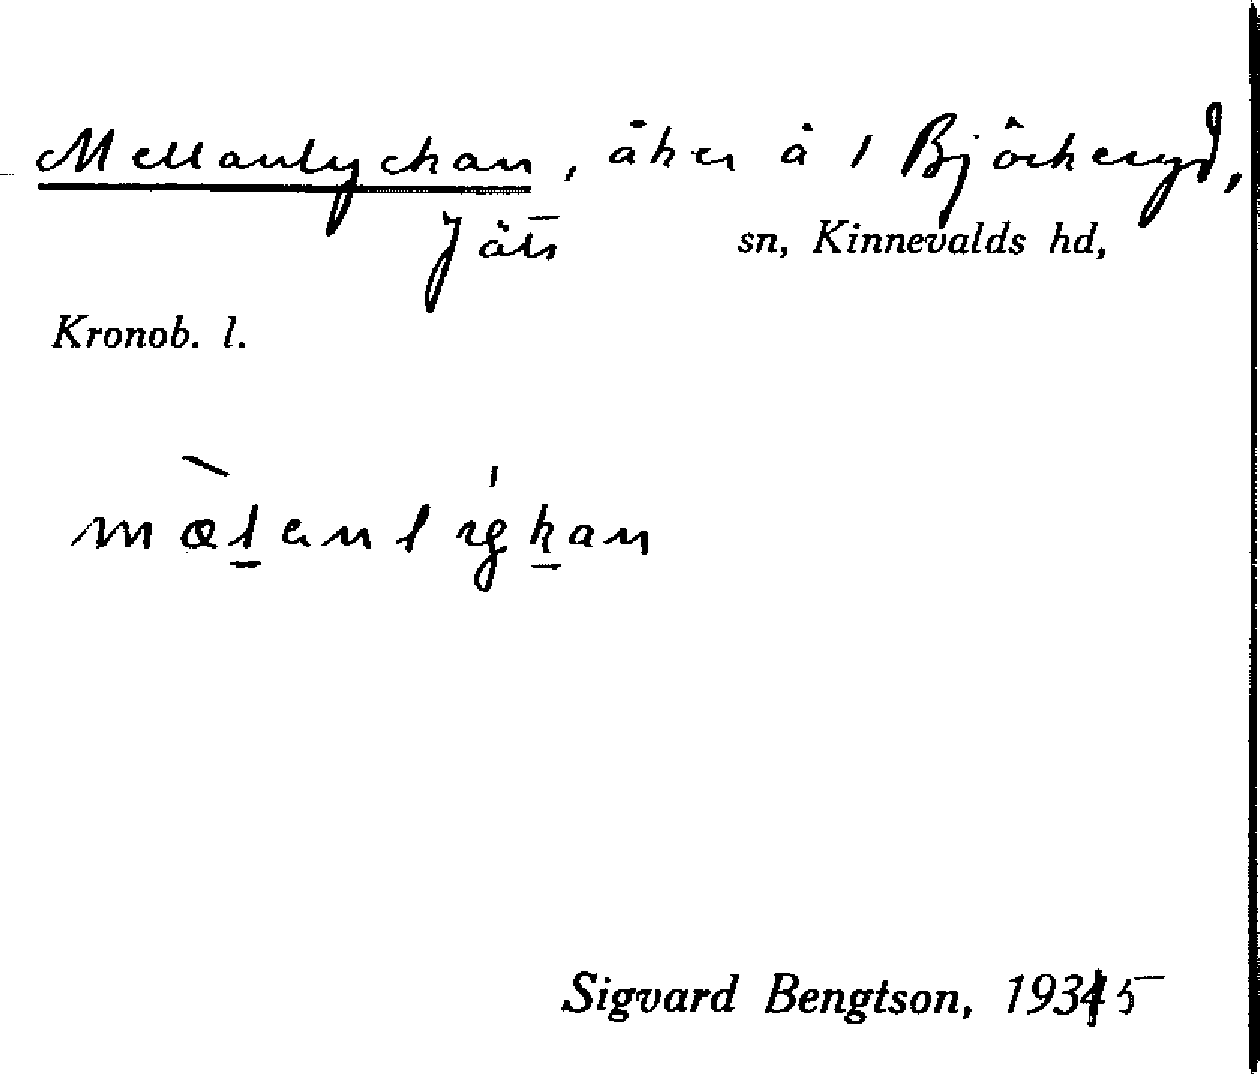 Mellanlyckan, åker å 1 Björkeryd,
Jäts sn, Kinnevalds hd,
Kronob. l.
Sigvard Bengtson, 1935